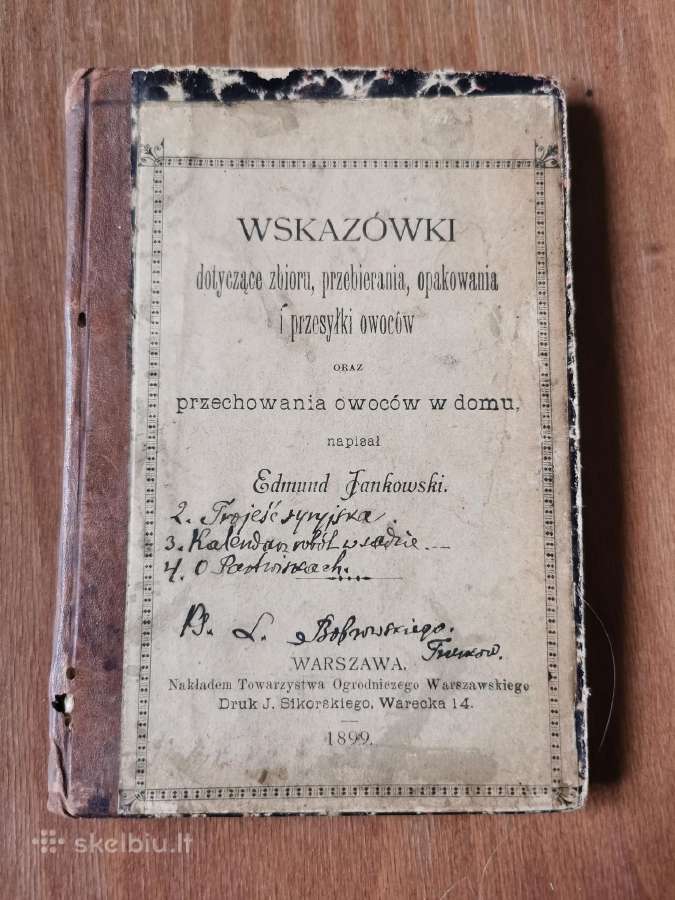 WSKAZÓWKI
dotyczące zbioru, przebierania, opakowania
i przesyłki owoców
ORAZ
przechowania owoców w domu,
napisał
Edmund Jankowski.
2. Trojeść syryjska.
3. Kalendarz robót w sadzie
4. O Pastwiskach.
B. L. Bobrowskiego.
WARSZAWA.
Nakładem Towarzystwa Ogrodniczego Warszawskiego
Druk J. Sikorskiego, Warecka 14.
1899.
skelbiu.lt